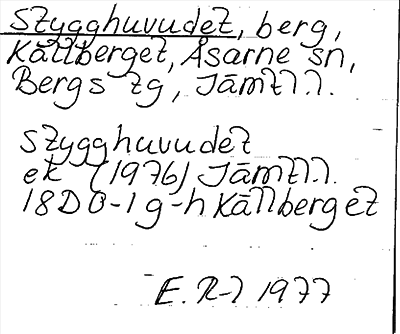 Stygghuvudet, berg,
Källberget, Åsarne sn,
Bergs tg, Jämtl.l.
Stygghuvudet
ek (1976) Jämtl.l.
18D 0-1g-h Källberget
E. R-) 1977